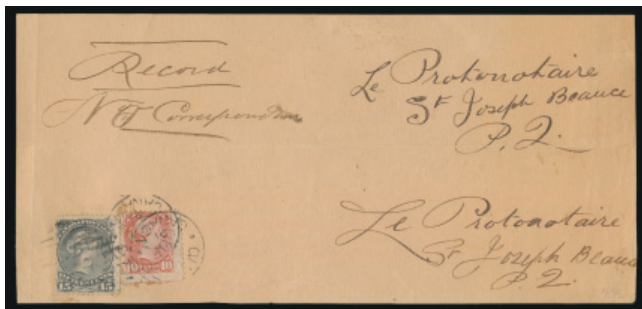 Record
Not Correspondence
Le Protonotaire
St Joseph Beauce
P.Q.
Le Protonotaire
St Joseph Beauce
P.Q.
15 15
10 10